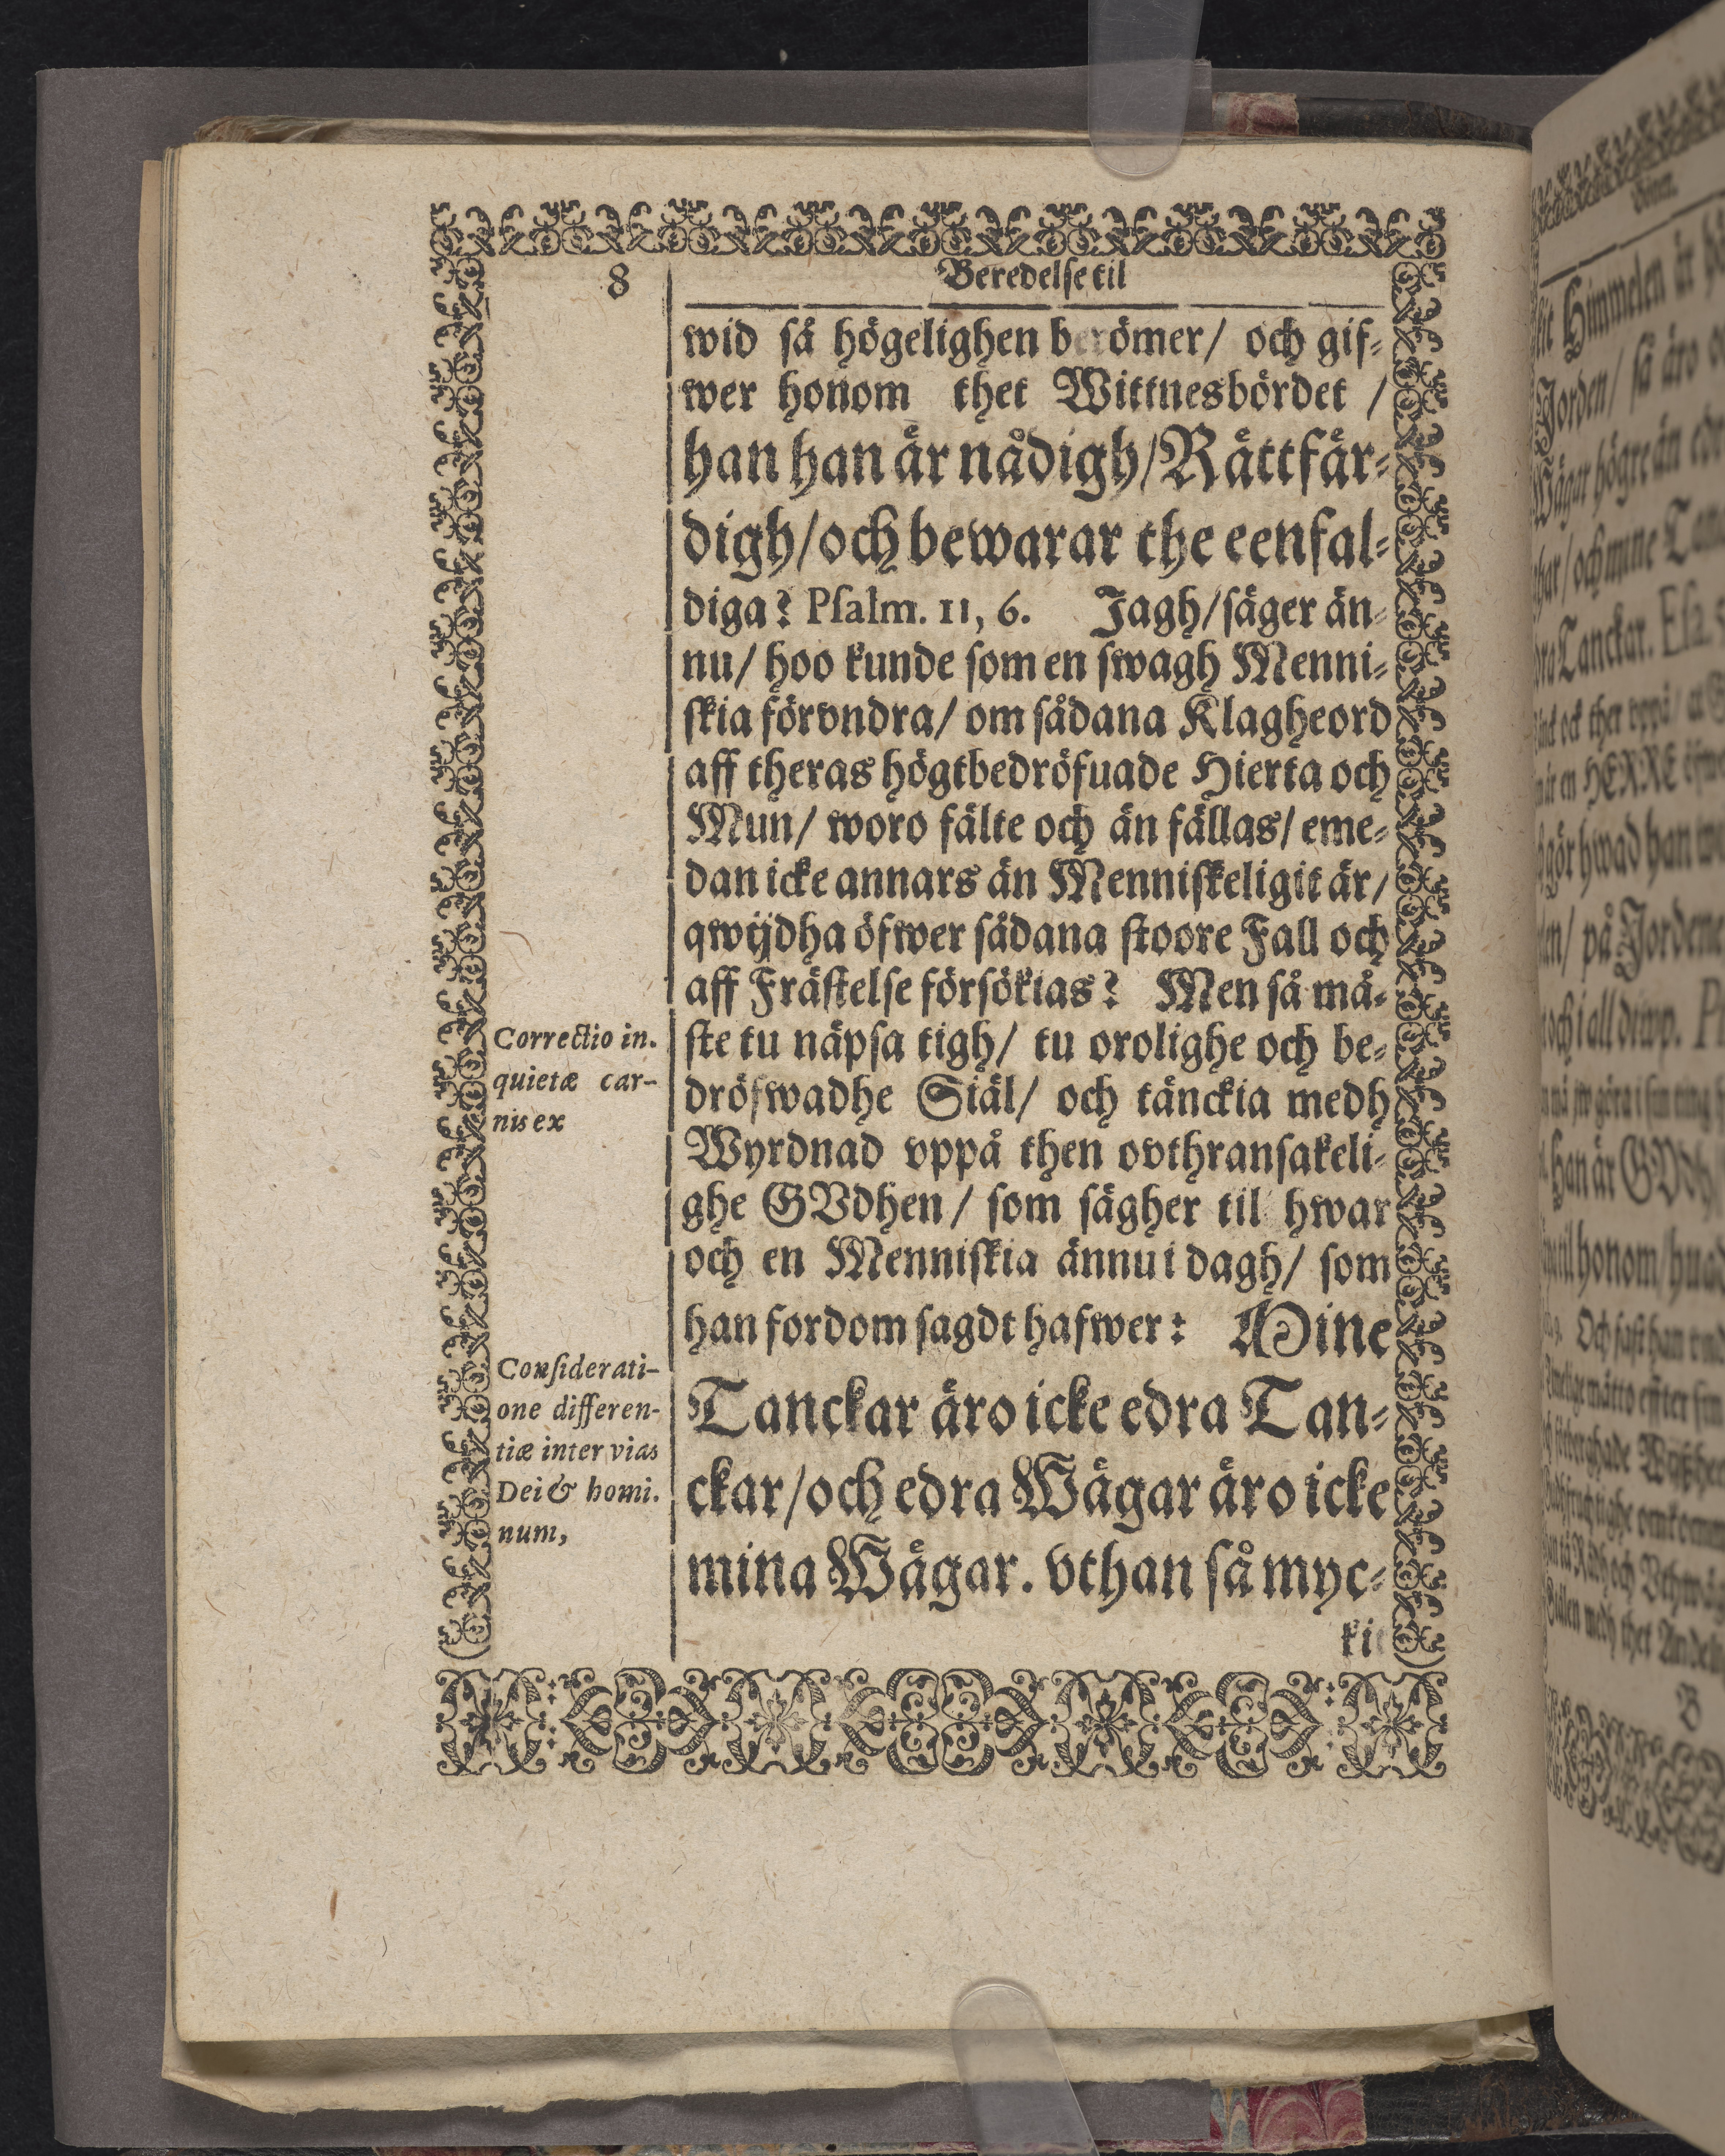 8
Beredelse til
wid så högelighen berömer/ och gif-
wer honom thet Wittnesbördet /
han han är nådigh/Rättfär-
digh/och bewarar the eenfal-
diga? Psalm. 11, 6. Jagh/säger än-
nu/ hoo kunde som en swagh Menni-
skia förvndra/ om sådana Klagheord
aff theras högtbedröfuade Hierta och
Mun/ woro fälte och än fällas/ eme-
dan icke annars än Menniskeligit är/
qwijdha öfwer sådana stoore Fall och
aff Frästelse försökias? Men så må-
ste tu näpsa tigh/ tu orolighe och be-
dröfwadhe Siäl/ och tänckia medh
Wyrdnad vppå then ovthransakeli-
ghe GVdhen/ som sägher til hwar
och en Menniskia ännu i dagh/ som
han fordom sagdt hafwer: Mine
Tanckar äro icke edra Tan-
ckar/och edra Wägar äro icke
mina Wägar. vthan så myc-
Correctio in.
quietæ car-
nis ex
Considerati-
one differen-
tiæ inter vias
Dei & homi.
num,